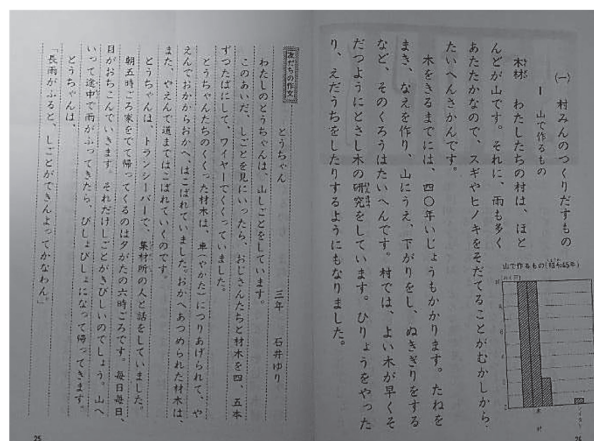 (一) 村みんのつくりだすもの
1 山で作るもの
木材 わたしたちの村は、ほと
んどが山です。それに、雨も多く
あたたかなので、スギやヒノキをそだてることがむかしから、
たいへんさかんです。
木をきるまでには、四〇年いじょうもかかります。たねを
まき、なえを作り、山にうえ、下がりをし、ぬきぎりをする
など、そのくろうはたいへんです。村では、よい木が早くそ
だつようにとさし木の研究をしています。ひりょうをやった
り、えだうちをしたりするようにもなりました。
山で作るもの(昭和45年)
木材
26
友だちの作文
とうちゃん
三年 石井ゆり
わたしのとうちゃんは、山しごとをしています。
このあいだ、しごとを見にいったら、おじさんたちと材木を四、五本
ずつたばにして、ワイヤーでくくっていました。
とうちゃんたちのくくった材木は、車(やかた)につりあげられて、や
えんでおかからおかへ、はこばれていました。おかへあつめられた材木は、
また、やえんで道まではこばれていくのです。
とうちゃんは、トランシーバーで、集材所の人と話をしていました。
朝五時ごろ家をでて帰ってくるのは夕がたの六時ごろです。毎日毎日、
目がおちこんでいきます。それだけしごとがきびしいのでしょう。山へ
いって途中で雨がふってきたら、びしょびしょになって帰ってきます。
とうちゃんは、
「長雨がふると、しごとができんよってかなわん。」
25